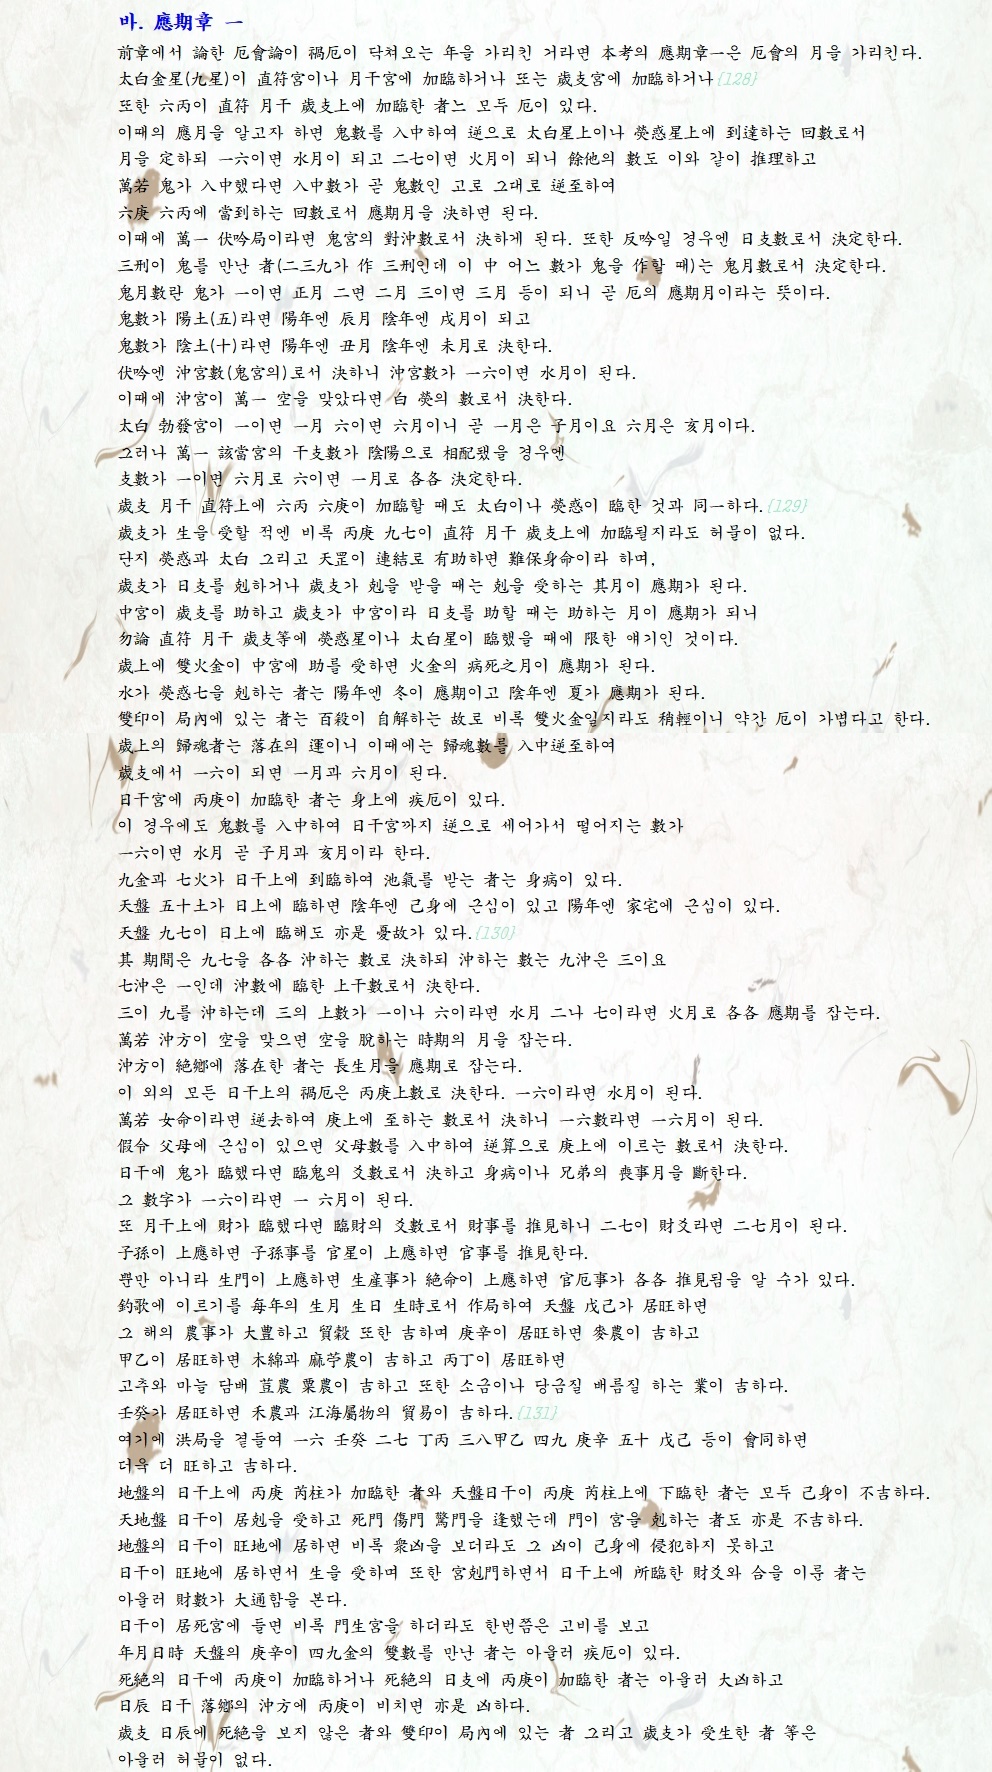 바. 應期章 一
前章에서 論한 厄會論이 禍厄이 닥쳐오는 年을 가리킨 거라면 本考의 應期章一은 厄會의 月을 가리킨다.
太白金星(九星)이 直符宮이나 月干宮에 加臨하거나 또는 歲支宮에 加臨하거나{128}
또한 六丙이 直符 月干 歲支上에 加臨한 者느 모두 厄이 있다.
이때의 應月을 알고자 하면 鬼數를 入中하여 逆으로 太白星上이나 熒惑星上에 到達하는 回數로서
月을 定하되 一六이면 水月이 되고 二七이면 火月이 되니 餘他의 數도 이와 같이 推理하고
萬若 鬼가 入中했다면 入中數가 곧 鬼數인 고로 그대로 逆至하여
六庚 六丙에 當到하는 回數로서 應期月을 決하면 된다.
이때에 萬一 伏吟局이라면 鬼宮의 對沖數로서 決하게 된다. 또한 反吟일 경우엔 日支數로서 決定한다.
三刑이 鬼를 만난 者(二三九가 作 三刑인데 이 中 어느 數가 鬼을 作할 때)는 鬼月數로서 決定한다.
鬼月數란 鬼가 一이면 正月 二면 二月 三이면 三月 등이 되니 곧 厄의 應期月이라는 뜻이다.
鬼數가 陽土(五)라면 陽年엔 辰月 陰年엔 戌月이 되고
鬼數가 陰土(十)라면 陽年엔 丑月 陰年엔 未月로 決한다.
伏吟엔 沖宮數(鬼宮의)로서 決하니 沖宮數가 一六이면 水月이 된다.
이때에 沖宮이 萬一 空을 맞았다면 白 熒의 數로서 決한다.
太白 勃發宮이 一이면 一月 六이면 六月이니 곧 一月은 子月이요 六月은 亥月이다.
그러나 萬一 該當宮의 干支數가 陰陽으로 相配됐을 경우엔
支數가 一이면 六月로 六이면 一月로 各各 決定한다.
歲支 月干 直符上에 六丙 六庚이 加臨할 때도 太白이나 熒惑이 臨한 것과 同一하다.{129}
歲支가 生을 受할 적엔 비록 丙庚 九七이 直符 月干 歲支上에 加臨될지라도 허물이 없다.
단지 熒惑과 太白 그리고 天罡이 連結로 有助하면 難保身命이라 하며,
歲支가 日支를 剋하거나 歲支가 剋을 받을 때는 剋을 受하는 其月이 應期가 된다.
中宮이 歲支를 助하고 歲支가 中宮이라 日支를 助할 때는 助하는 月이 應期가 되니
勿論 直符 月干 歲支等에 熒惑星이나 太白星이 臨했을 때에 限한 얘기인 것이다.
歲上에 雙火金이 中宮에 助를 受하면 火金의 病死之月이 應期가 된다.
水가 熒惑七을 剋하는 者는 陽年엔 冬이 應期이고 陰年엔 夏가 應期가 된다.
雙印이 局內에 있는 者는 百殺이 自解하는 故로 비록 雙火金일지라도 稍輕이니 약간 厄이 가볍다고 한다.
歲上의 歸魂者는 落在의 運이니 이때에는 歸魂數를 入中逆至하여
歲支에서 一六이 되면 一月과 六月이 된다.
日干宮에 丙庚이 加臨한 者는 身上에 疾厄이 있다.
이 경우에도 鬼數를 入中하여 日干宮까지 逆으로 세어가서 떨어지는 數가
一六이면 水月 곧 子月과 亥月이라 한다.
九金과 七火가 日干上에 到臨하여 池氣를 받는 者는 身病이 있다.
天盤 五十土가 日上에 臨하면 陰年엔 己身에 근심이 있고 陽年엔 家宅에 근심이 있다.
天盤 九七이 日上에 臨해도 亦是 憂故가 있다.{130}
其 期間은 九七을 各各 沖하는 數로 決하되 沖하는 數는 九沖은 三이요
七沖은 一인데 沖數에 臨한 上干數로서 決한다.
三이 九를 沖하는데 三의 上數가 一이나 六이라면 水月 二나 七이라면 火月로 各各 應期를 잡는다.
萬若 沖方이 空을 맞으면 空을 脫하는 時期의 月을 잡는다.
沖方이 絶鄕에 落在한 者는 長生月을 應期로 잡는다.
이 외의 모든 日干上의 禍厄은 丙庚上數로 決한다. 一六이라면 水月이 된다.
萬若 女命이라면 逆去하여 庚上에 至하는 數로서 決하니 一六數라면 一六月이 된다.
假令 父母에 근심이 있으면 父母數를 入中하여 逆算으로 庚上에 이르는 數로서 決한다.
日干에 鬼가 臨했다면 臨鬼의 爻數로서 決하고 身病이나 兄弟의 喪事月을 斷한다.
그 數字가 一六이라면 一 六月이 된다.
또 月干上에 財가 臨했다면 臨財의 爻數로서 財事를 推見하니 二七이 財爻라면 二七月이 된다.
子孫이 上應하면 子孫事를 官星이 上應하면 官事를 推見한다.
뿐만 아니라 生門이 上應하면 生産事가 絶命이 上應하면 官厄事가 各各 推見됨을 알 수가 있다.
釣歌에 이르기를 每年의 生月 生日 生時로서 作局하여 天盤 戊己가 居旺하면
그 해의 農事가 大豊하고 貿穀 또한 吉하며 庚辛이 居旺하면 麥農이 吉하고
甲乙이 居旺하면 木綿과 麻苧農이 吉하고 丙丁이 居旺하면
고추와 마늘 담배 荳農 粟農이 吉하고 또한 소금이나 당금질 배름질 하는 業이 吉하다.
壬癸가 居旺하면 禾農과 江海屬物의 貿易이 吉하다.{131}
여기에 洪局을 곁들여 一六 壬癸 二七 丁丙 三八甲乙 四九 庚辛 五十 戊己 등이 會同하면
더욱 더 旺하고 吉하다.
地盤의 日干上에 丙庚 芮柱가 加臨한 者와 天盤日干이 丙庚 芮柱上에 下臨한 者는 모두 己身이 不吉하다.
天地盤 日干이 居剋을 受하고 死門 傷門 驚門을 逢했는데 門이 宮을 剋하는 者도 亦是 不吉하다.
地盤의 日干이 旺地에 居하면 비록 衆凶을 보더라도 그 凶이 己身에 侵犯하지 못하고
日干이 旺地에 居하면서 生을 受하며 또한 宮剋門하면서 日干上에 所臨한 財爻와 合을 이룬 者는
아울러 財數가 大通함을 본다.
日干이 居死宮에 들면 비록 門生宮을 하더라도 한번쯤은 고비를 보고
年月日時 天盤의 庚辛이 四九金의 雙數를 만난 者는 아울러 疾厄이 있다.
死絶의 日干에 丙庚이 加臨하거나 死絶의 日支에 丙庚이 加臨한 者는 아울러 大凶하고
日辰 日干 落鄕의 沖方에 丙庚이 비치면 亦是 凶하다.
歲支 日辰에 死絶을 보지 않은 者와 雙印이 局內에 있는 者 그리고 歲支가 受生한 者 等은
아울러 허물이 없다.